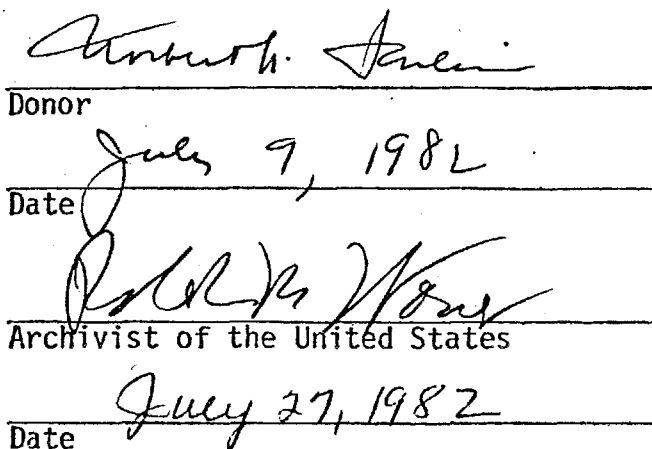 Norbert
Donor
July 9, 1982
Date
Robert M. Warner
Archivist of the United States
July 27, 1982
Date